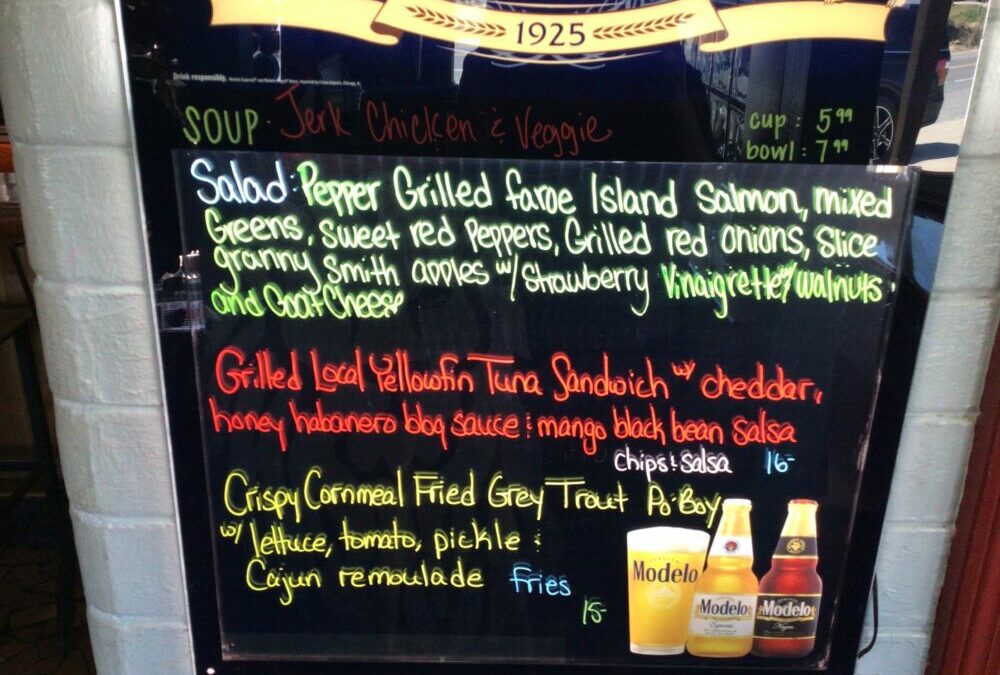 1925
Drink responsibly.
SOUP · Jerk Chicken & Veggie
cup : 5.99
bowl : 7.99
Salad: Pepper Grilled faroe Island Salmon, mixed
Greens, sweet red Peppers, Grilled red onions, Slice
granny Smith apples w/ Strawberry Vinaigrette w/ walnuts
and Goat Cheese
Grilled Local Yellowfin Tuna Sandwich w/ cheddar,
honey habanero bbq sauce & mango black bean salsa
chips & salsa 16-
Crispy Cornmeal Fried Grey Trout Po Boy
w/ lettuce, tomato, pickle &
Cajun remoulade fries
15-
Modelo
Modelo
Especial
Modelo
Negra